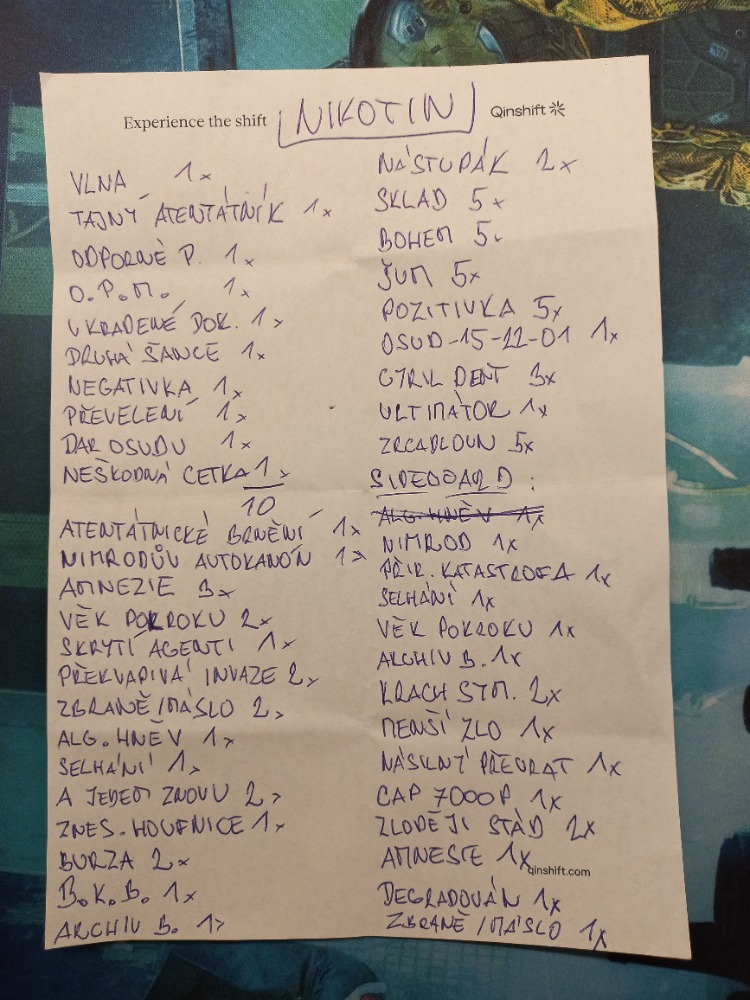 Experience the shift NIKOTIN Qinshift
VLNA 1x
TAJNÝ ATENTÁTNÍK 1x
ODPORNÉ P. 1x
O.P.O.M. 1x
UKRADENÉ DOK. 1x
DRUHÁ ŠANCE 1x
NEGATIVKA 1x
PŘEVELENÍ 1x
DAR OSUDU 1x
NEŠKODNÁ CETKA 1x
10
ATENTÁTNICKÉ BRNĚNÍ 1x
NIMRODŮV AUTOKANÓN 1x
AMNEZIE 3x
VĚK POKROKU 2x
SKRYTÍ AGENTI 1x
PŘEKVAPIVÁ INVAZE 2x
ZBRANĚ/MÁSLO 2x
ALG. HNĚV 1x
SELHÁNÍ 1x
A JEDEM ZNOVU 2x
ZNES. HOUFNICE 1x
BURZA 2x
B.K.B. 1x
ARCHIV B. 1x
NÁSTUPÁK 2x
SKLAD 5x
BOHEM 5x
ŠUM 5x
POZITIVKA 5x
OSUD-15-22-01 1x
CYRIL DENT 3x
ULTIMÁTOR 1x
ZRCADLOUN 5x
SIDEBOARD:
ALG. HNĚV 1x
NIMROD 1x
PŘÍR. KATASTROFA 1x
SELHÁNÍ 1x
VĚK POKROKU 1x
ARCHIV B. 1x
KRACH SYM. 2x
MENŠÍ ZLO 1x
NÁSILNÝ PŘEVRAT 1x
CAP 7000P 1x
ZLODĚJI STÁD 2x
AMNESIE 1x
qinshift.com
DEGRADOVÁN 1x
ZBRANĚ/MÁSLO 1x